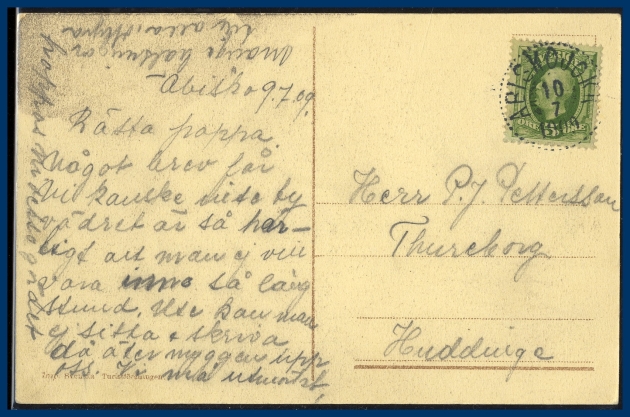 Abisko 9.7.09.
Bästa pappa.
Något brev får
vi kanske inte ty
vädret är så här-
ligt att man ej vill
vara inne så lång
stund. Ute kan man
ej sitta & skriva
då äter myggen upp
oss. Vi må utmärkt,
hoppas
Många hälsningar
till alla
Herr P. J. Pettersson
Thureborg
Huddinge
ABISKOJOKK
10
7
ÖRE
5